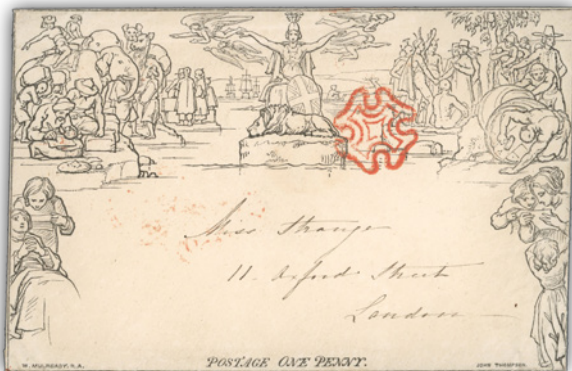 Miss Strange
11 - Oxford Street
London
W. MULREADY. R.A.
POSTAGE ONE PENNY.
JOHN THOMPSON